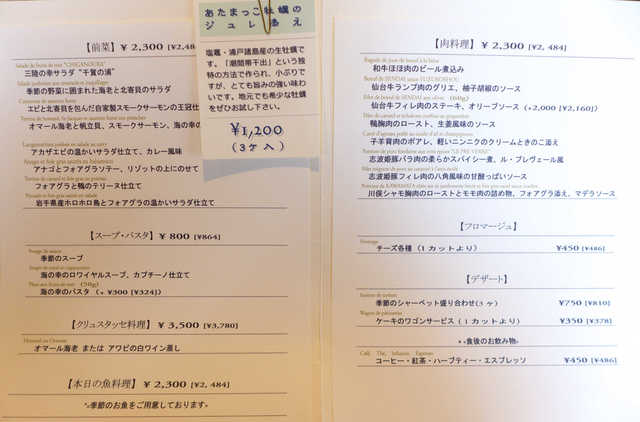 【前菜】 ¥ 2,300
三陸の幸サラダ "千賀の浦"
季節の野菜に囲まれた海老と北寄貝のサラダ
エビと北寄貝を包んだ自家製スモークサーモンの王冠仕
オマール海老と帆立貝、スモークサーモン、海の幸の
アカザエビの温かいサラダ仕立て、カレー風味
アナゴとフォアグラソテー、リゾットの上にのせて
フォアグラと鴨のテリーヌ仕立て
岩手県産ホロホロ鳥とフォアグラの温かいサラダ仕立て
【スープ・パスタ】 ¥ 800 [¥864]
季節のスープ
海の幸のロワイヤルスープ、カプチーノ仕立て
海の幸のパスタ (+ ¥300 [¥324])
【クリュスタッセ料理】 ¥ 3,500 [¥3,780]
オマール海老 または アワビの白ワイン蒸し
【本日の魚料理】 ¥ 2,300 [¥2, 484]
*○季節のお魚をご用意しております○
あたまっこ牡蠣の
ジュレ添え
塩竈・浦戸諸島産の生牡蠣で
す。「潮間帯干出」という独
特の方法で作られ、小ぶりで
すが、とても旨みの強い味わ
いです。地元でも希少な牡蠣
をぜひお試し下さい。
¥1,200
(3ケ入)
【肉料理】 ¥ 2,300 [¥2, 484]
和牛ほほ肉のビール煮込み
仙台牛ランプ肉のグリエ、柚子胡椒のソース
仙台牛フィレ肉のステーキ、オリーブソース (+2,000 [¥2,160])
鴨胸肉のロースト、生姜風味のソース
子羊背肉のポアレ、軽いニンニクのクリームときのこ添え
志波姫豚バラ肉の柔らかスパイシー煮、ル・プレヴェール風
志波姫豚フィレ肉の八角風味の甘酸っぱいソース
川俣シャモ胸肉のローストとモモ肉の詰め物、フォアグラ添え、マデラソース
【フロマージュ】
Fromage
チーズ各種 (1カットより) ¥450 [¥486]
【デザート】
季節のシャーベット盛り合わせ(3ヶ) ¥750 [¥810]
Wagon de pâtisseries
ケーキのワゴンサービス (1カットより) ¥350 [¥378]
*○食後のお飲み物○
Café, Thé, Infusion, Espresso
コーヒー・紅茶・ハーブティー・エスプレッソ ¥450 [¥486]